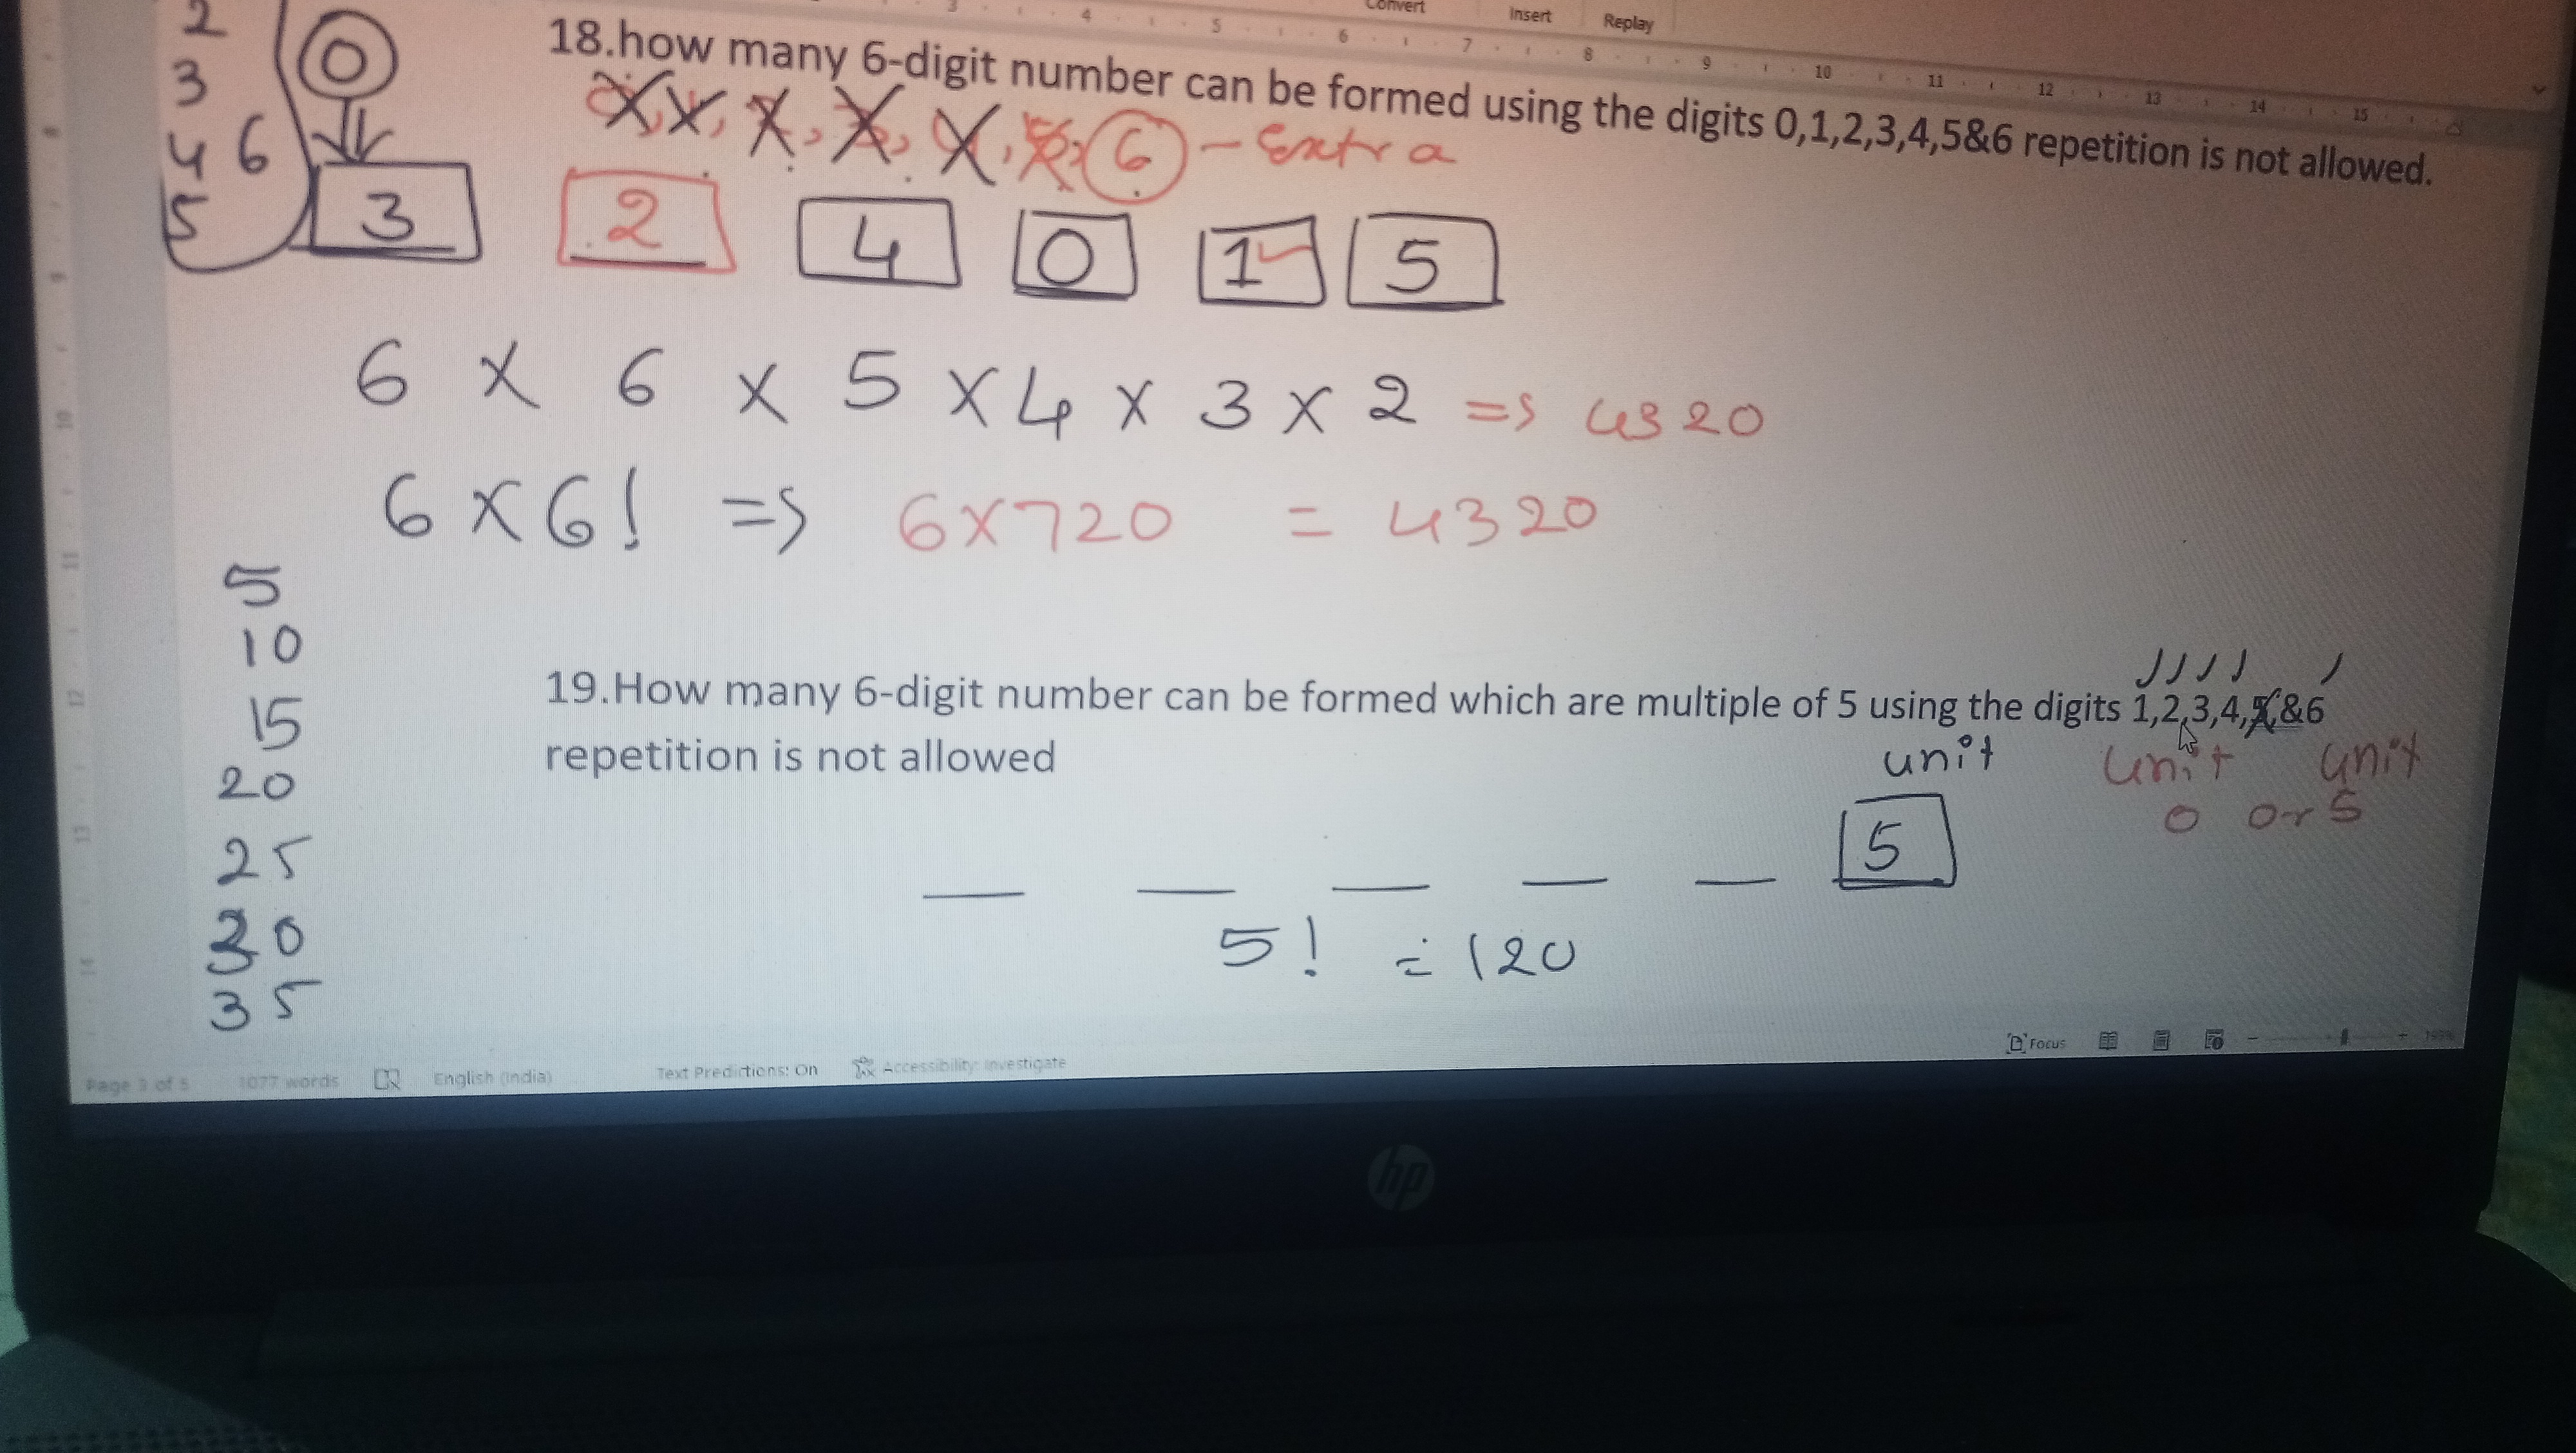 Convert Insert Replay
18.how many 6-digit number can be formed using the digits 0,1,2,3,4,5&6 repetition is not allowed.
6 - Extra
2
3
4 6
5
0
3 2 4 0 1 5
6 x 6 x 5 x 4 x 3 x 2 => 4320
6 x 6! => 6x720 = 4320
19.How many 6-digit number can be formed which are multiple of 5 using the digits 1,2,3,4,5&6
repetition is not allowed
unit unit unit
0 or 5
5
10
15
20
25
30
35
5
5! = 120
Page 3 of 5 1077 words English (India) Text Predictions: On Accessibility: Investigate Focus
hp